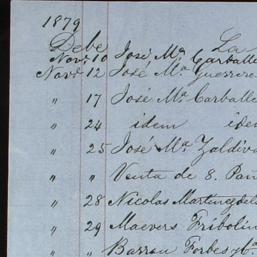 1879
Debe La
Novr. 10 José Ma. Carballe
Novr. 12 José Ma. Guerrero
" 17 José Ma. Carballe
" 24 idem iden
" 25 José Ma. Zaldiva
" " Venta de 8. Pan
" 28 Nicolas Martinez del
" 29 Maevers Fribolin
" " Barron Forbes y Ca.